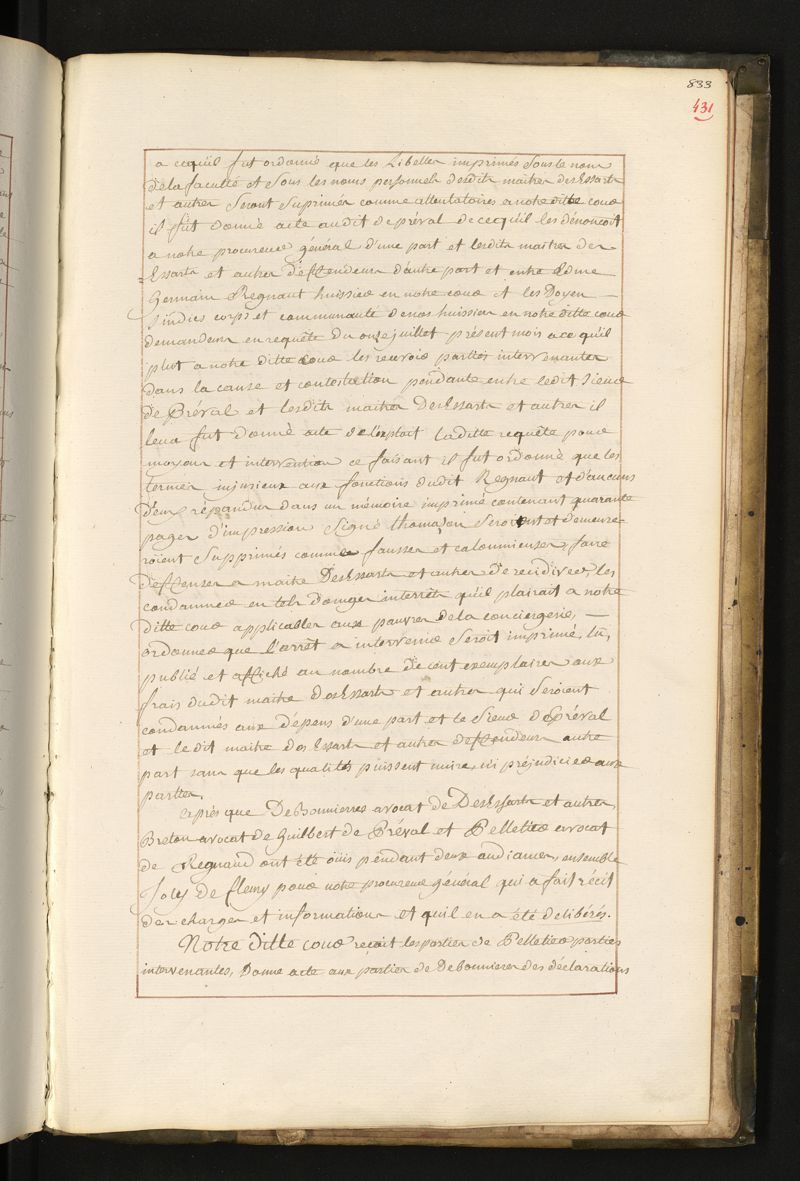 833
431
a cequil fut ordonné que les Libelles imprimés sous le nom
de la faculté et sous les noms personnels desdits maitres desEssarts
et autres seront suprimés comme attentatoires a notre ditte cour
il fut donné acte audit depréval de cequil les dénoncoit
a notre procureur général d'une part et lesdits maitres des
Essarts et autres deffendeurs d'autre part et entre Edme
Germain Regnaut huissier en notre cour et les Doyen
sindics corps et communauté denos huissiers en notre ditte cour
demandeurs en requête du onze juillet présent mois a ce qu'il
plut a notre ditte cour les recevoir parties intervenantes
dans la cause et contestation pendante entre ledit sieur
de Préval et lesdits maitres DesEssarts et autres il
leur fut donné acte de l'exploit laditte requête pour
moyens et intervention ce faisant il fut ordonné que les
termes injurieux aux fonctions dudit Regnaut et d'aucuns
d'eux répandus dans un mémoire imprimé contenant quarante
pages d'impression signé thomazon seroient et demeure-
roient supprimés comme fausses et calomnieuses, faire
deffenses a maitre DesEssarts et autres de récidiver, les
condamner en tels domages interrêts qu'il plairait a notre
ditte cour applicables aux pauvres de la conciergerie,
ordonner que l'arrêt a intervenir seroit imprimé, lu,
publié et affiché au nombre de cent exemplaires aux
frais dudit maitre desEssarts et autres qui seroient
condamnés aux dépens d'une part et le sieur dePréval
et ledit maitre desEssarts et autres deffendeurs autre
part sans que les qualités puissent nuire, ni préjudicier aux
parties,
après que Debonnieres avocat de DesEssarts et autres,
Breton avocat de Guilbert de Préval et Pelletier avocat
de Regnaud ont été ouis pendant deux audiances, ensemble
Joly de fleury pour notre procureur général qui a fait récit
des charges et informations et quil en a été delibéré.
Notre ditte cour recoit les parties de Pelletier parties
intervenantes, Donne acte aux parties de Debonnieres des déclarations